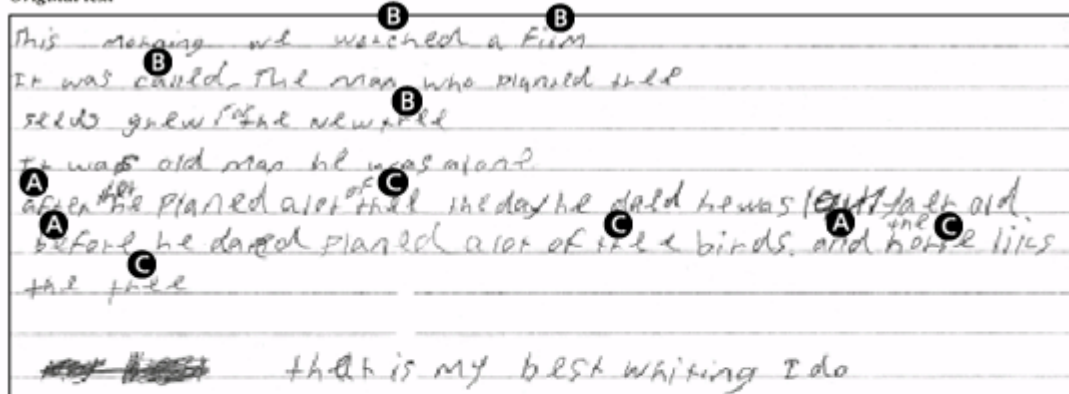 Original text
B B
This morning we wotched a Film
B
It was called. The man who planed tree
B
seeds grew for the new tree
It was old man he was alone
A C
after that he planed alot of tree the day he daed he was year old
A C A C
before he daeed planed a lot of tree birds. and the horse liks
C
the tree
that is my best whiting I do